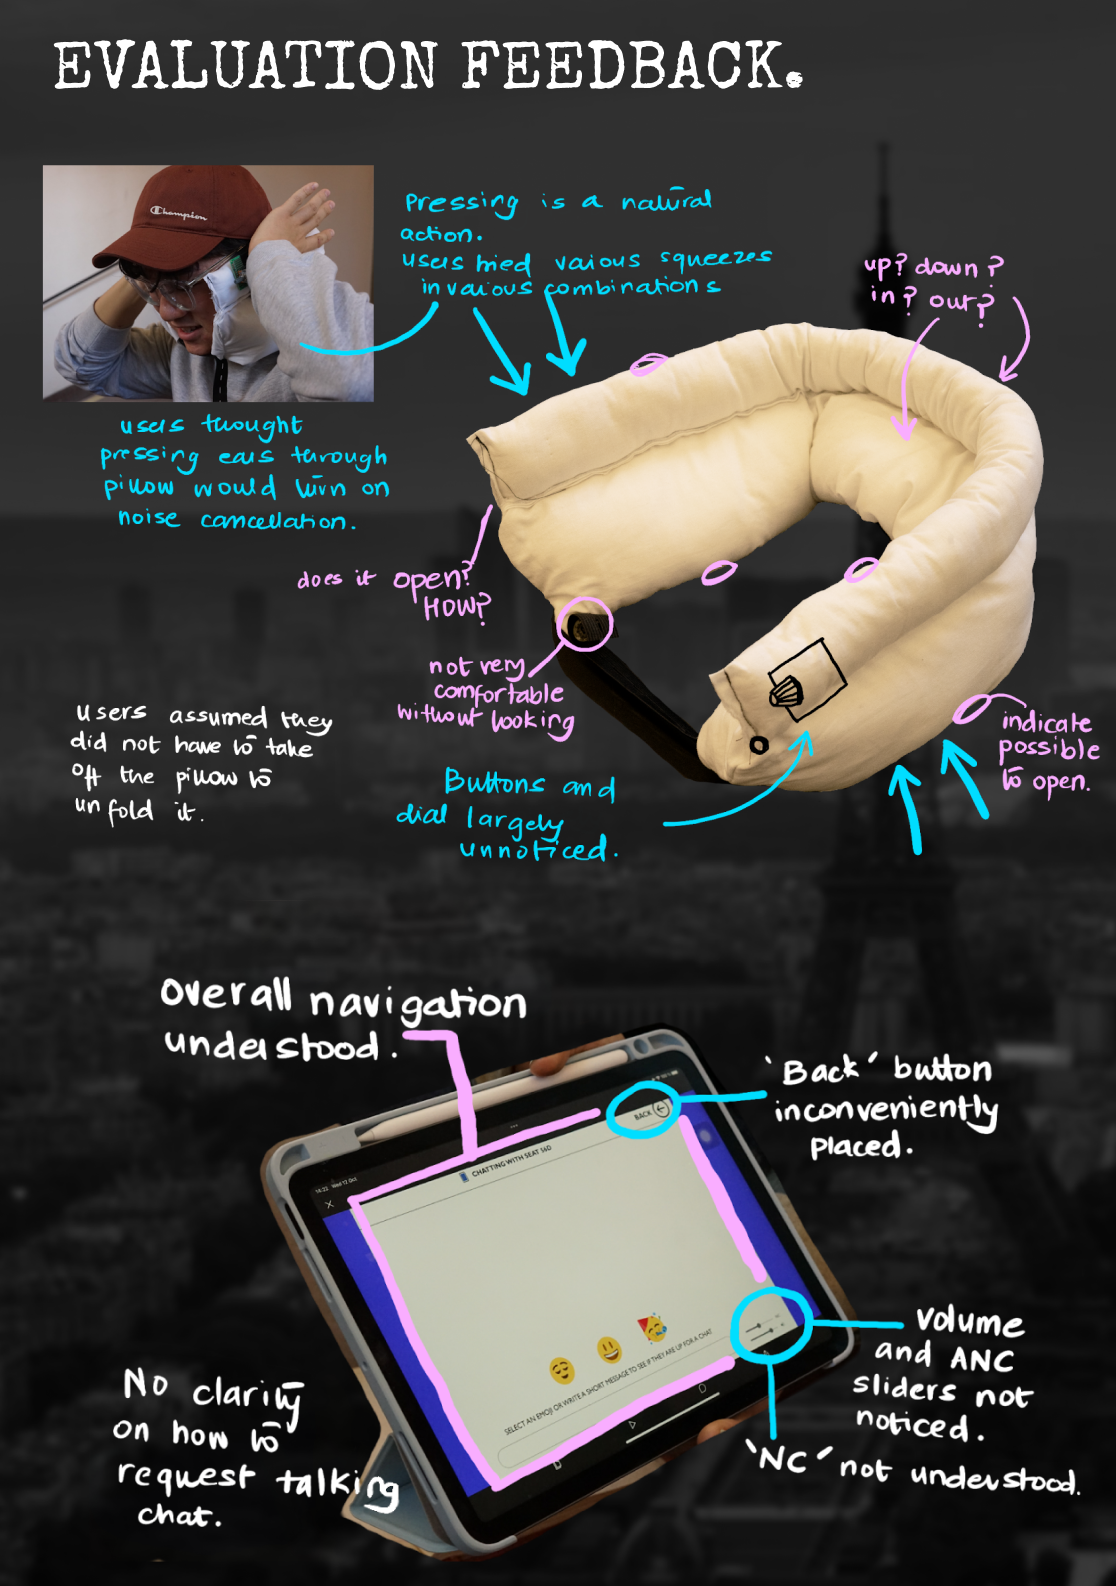 EVALUATION FEEDBACK.
Champion
Pressing is a natural
action.
users tried vaious squeezes
in vaious combinations
up? down?
in? out?
users thought
pressing ears through
pillow would turn on
noise cancellation.
does it open?
HOW?
not very
comfortable
without looking
users assumed they
did not have to take
off the pillow to
unfold it.
Buttons and
dial largely
unnoticed.
indicate
possible
to open.
Overall navigation
understood.
'Back' button
inconveniently
placed.
BACK
CHATTING WITH SEAT 16D
14:22 Wed 12 Oct
SELECT AN EMOJI OR WRITE A SHORT MESSAGE TO SEE IF THEY ARE UP FOR A CHAT
Volume
and ANC
sliders not
noticed.
'NC' not understood.
No clarity
on how to
request talking
chat.